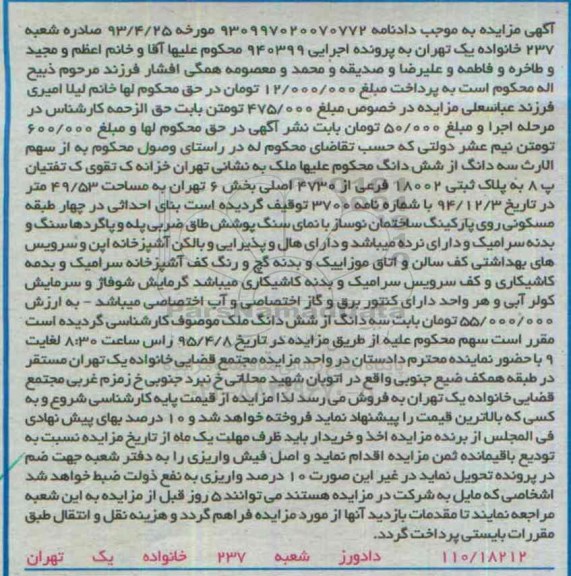 آگهی مزایده به موجب دادنامه ۹۳۰۹۹۷۰۲۰۰۷۰۷۷۲ مورخه ۹۳/۴/۲۵ صادره شعبه
۲۳۷ خانواده یک تهران به پرونده اجرایی ۹۴۰۳۹۹ محکوم علیها آقا و خانم اعظم و مجید
و طاخره و فاطمه و علیرضا و صدیقه و محمد و معصومه همگی افشار فرزند مرحوم ذبیح
اله محکوم است به پرداخت مبلغ ۱۲/۰۰۰/۰۰۰ تومان در حق محکوم لها خانم لیلا امیری
فرزند عباسعلی مزایده در خصوص مبلغ ۴۷۵/۰۰۰ تومتن بابت حق الزحمه کارشناس در
مرحله اجرا و مبلغ ۵۰/۰۰۰ تومان بابت نشر آگهی در حق محکوم لها و مبلغ ۶۰۰/۰۰۰
تومتن نیم عشر دولتی که حسب تقاضای محکوم له در راستای وصول محکوم به از سهم
الارث سه دانگ از شش دانگ محکوم علیها ملک به نشانی تهران خزانه ک تقوی ک تفتیان
پ ۸ به پلاک ثبتی ۱۸۰۰۲ فرعی از ۴۷۳۰ اصلی بخش ۶ تهران به مساحت ۴۹/۵۳ متر
در تاریخ ۹۴/۱۲/۳ با شماره نامه ۳۷۰۰ توقیف گردیده است بنای احداثی در چهار طبقه
مسکونی روی پارکینگ ساختمان نوساز با نمای سنگ پوشش طاق ضربی پله و پاگردها سنگ و
بدنه سرامیک و دارای نرده میباشد و دارای هال و پذیرایی و بالکن آشپزخانه اپن و سرویس
های بهداشتی کف سالن و اتاق موزاییک و بدنه گچ و رنگ کف آشپزخانه سرامیک و بدمه
کاشیکاری و کف سرویس سرامیک و بدنه کاشیکاری میباشد گرمایش شوفاژ و سرمایش
کولر آبی و هر واحد دارای کنتور برق و گاز اختصاصی و آب اختصاصی میباشد - به ارزش
۵۵/۰۰۰/۰۰۰ تومان بابت سه دانگ از شش دانگ ملک موصوف کارشناسی گردیده است
مقرر است سهم محکوم علیه از طریق مزایده در تاریخ ۹۵/۴/۸ راس ساعت ۸:۳۰ لغایت
۹ با حضور نماینده محترم دادستان در واحد مزایده مجتمع قضایی خانواده یک تهران مستقر
در طبقه همکف ضیع جنوبی واقع در اتوبان شهید محلاتی خ نبرد جنوبی خ زمزم غربی مجتمع
قضایی خانواده یک تهران به فروش می رسد لذا مزایده از قیمت پایه کارشناسی شروع و به
کسی که بالاترین قیمت را پیشنهاد نماید فروخته خواهد شد و ۱۰ درصد بهای پیش نهادی
فی المجلس از برنده مزایده اخذ و خریدار باید ظرف مهلت یک ماه از تاریخ مزایده نسبت به
تودیع باقیمانده ثمن مزایده اقدام نماید و اصل فیش واریزی را به دفتر شعبه جهت ضم
در پرونده تحویل نماید در غیر این صورت ۱۰ درصد واریزی به نفع دولت ضبط خواهد شد
اشخاصی که مایل به شرکت در مزایده هستند می توانند ۵ روز قبل از مزایده به این شعبه
مراجعه نمایند تا مقدمات بازدید آنها از مورد مزایده فراهم گردد و هزینه نقل و انتقال طبق
مقررات بایستی پرداخت گردد.
۱۱۰/۱۸۲۱۲ دادورز شعبه ۲۳۷ خانواده یک تهران